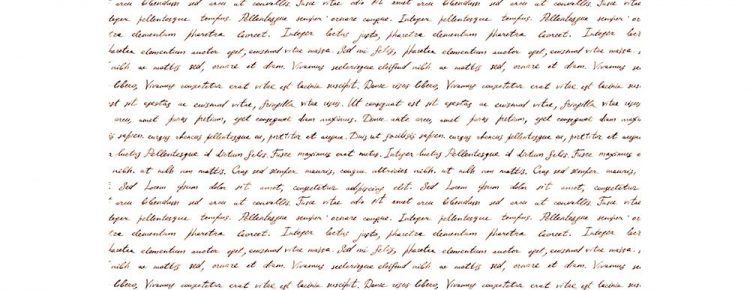 arcu bibendum sed arcu ut convallis. Fusce vitae odio sit amet arcu bibendum sed arcu ut convallis. Fusce vitae od
teger pellentesque tempus. Pellentesque semper ornare congue. Integer pellentesque tempus. Pellentesque semper or
tra elementum pharetra laoreet. Integer lectus justo, pharetra elementum pharetra laoreet. Integer l
haretra elementum auctor eget, euismod vitae massa. Sed mi felis, pharetra elementum auctor eget, euismod vitae massa.
nibh ac mattis sed, ornare et diam. Vivamus scelerisque eleifend nibh ac mattis sed, ornare et diam. Vivamus
libero, Vivamus consectetur erat vitae est lacinia suscipit. Donec risus libero, Vivamus consectetur erat vitae est
est sit egestas ac euismod vitae, fringilla vitae risus. Ut consequat est sit egestas ac euismod vitae, fringilla vitae
arcu, amet purus pretium, eget consequat diam maximus. Donec ante arcu, amet purus pretium, eget consequat diam
is sapien. cursus rhoncus pellentesque ac, porttitor et neque. Duis ut facilisis sapien. cursus rhoncus pellentesque ac, porttitor et neque
r luctus Pellentesque id dictum felis. Fusce maximus erat metus. Integer luctus Pellentesque id dictum felis. Fusce maximus e
nibh. ut nibh non mattis. Cras sed semper mauris, congue ultricies nibh. ut nibh non mattis. Cras sed semper mauris,
t Sed Lorem ipsum dolor sit amet, consectetur adipiscing elit. Sed Lorem ipsum dolor sit amet, consectetur
arcu bibendum sed arcu ut convallis. Fusce vitae odio sit amet arcu bibendum sed arcu ut convallis. Fusce vitae od
teger pellentesque tempus. Pellentesque semper ornare congue. Integer pellentesque tempus. Pellentesque semper or
tra elementum pharetra laoreet. Integer lectus justo, pharetra elementum pharetra laoreet. Integer l
haretra elementum auctor eget, euismod vitae massa. Sed mi felis, pharetra elementum auctor eget, euismod vitae massa.
nibh ac mattis sed, ornare et diam. Vivamus scelerisque eleifend nibh ac mattis sed, ornare et diam. Vivamus s
libero, Vivamus consectetur erat vitae est lacinia suscipit. Donec risus libero, Vivamus consectetur erat vitae est